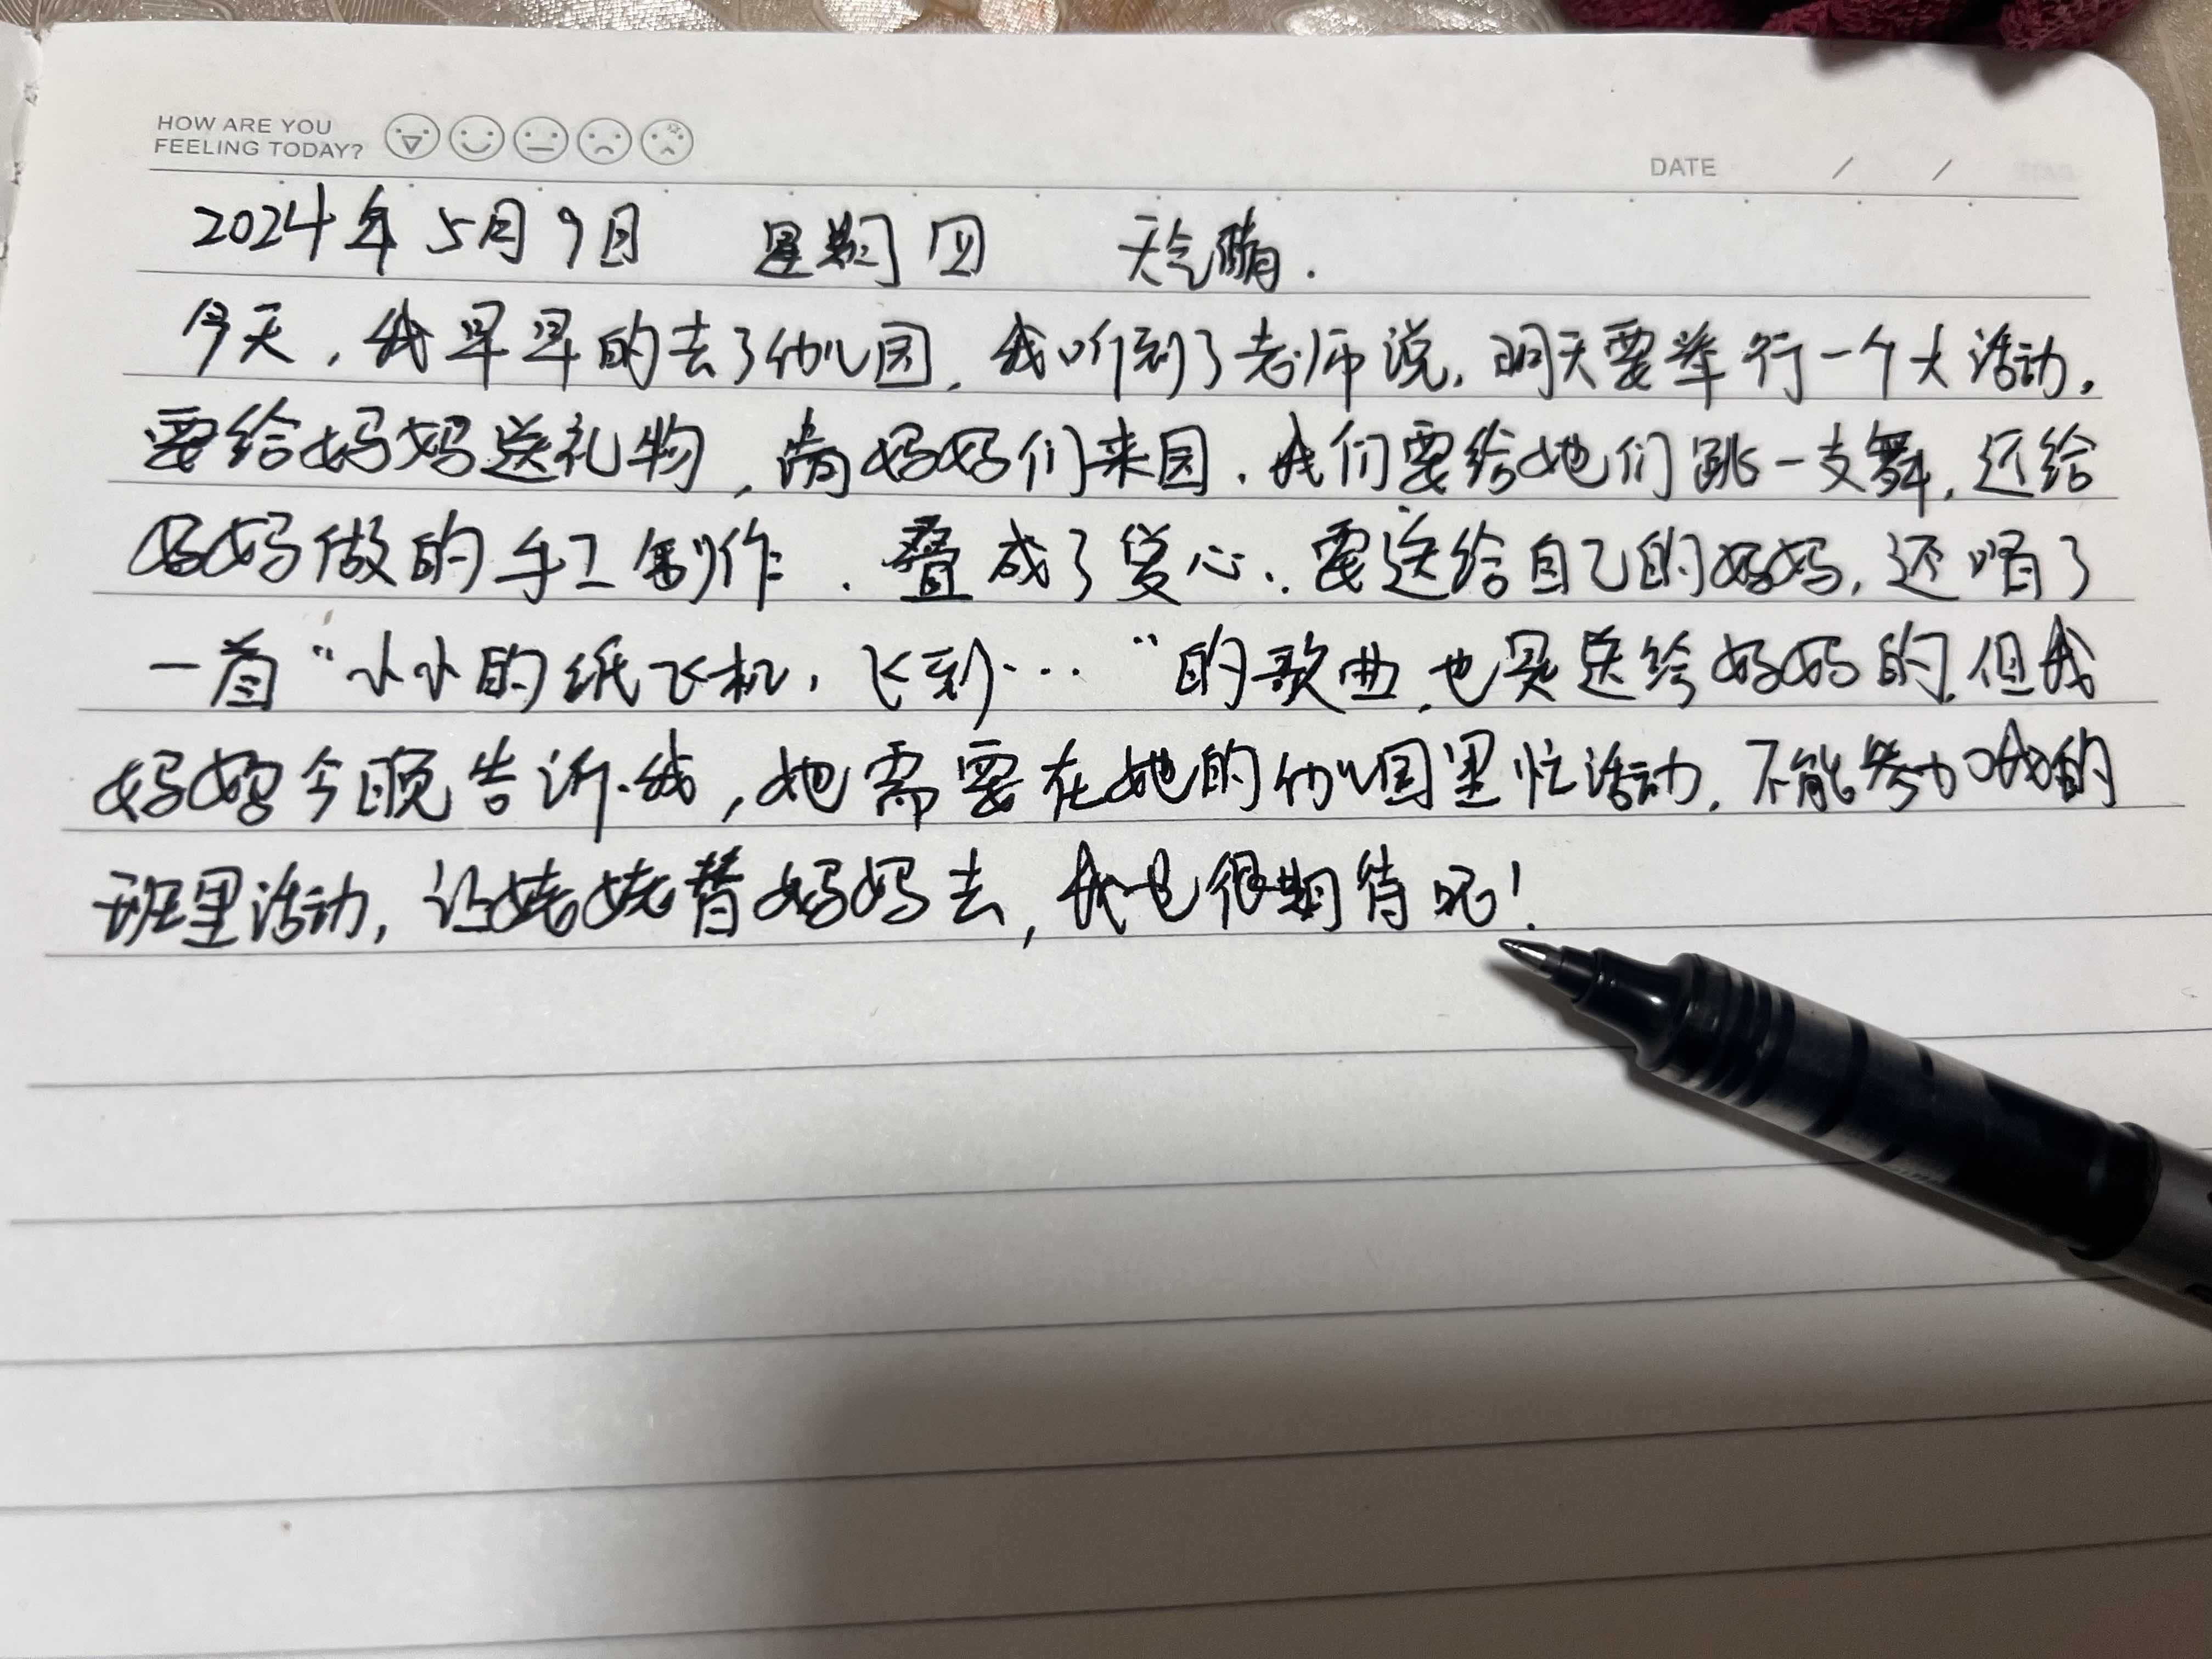 HOW ARE YOU
FEELING TODAY?
DATE / /
2024年5月9日 星期四 天气晴.
今天,我早早的去了幼儿园,我听到了老师说,明天要举行一个大活动,
要给妈妈送礼物,请妈妈们来园,我们要给她们跳一支舞,还给
妈妈做的手工制作、叠成了爱心,要送给自己的妈妈,还唱了
一首“小小的纸飞机,飞到…”的歌曲,也是送给妈妈的,但我
妈妈今晚告诉我,她需要在她的幼儿园里忙活动,不能参加我的
班里活动,让姥姥替妈妈去,我也很期待呢!